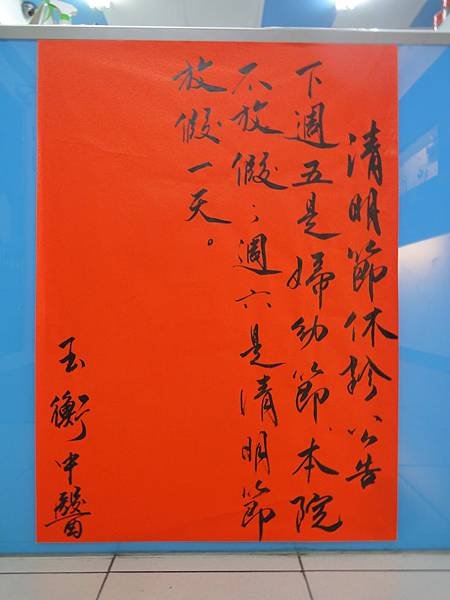 清明節休診公告
下週五是婦幼節，本院
不放假；週六是清明節
放假一天。
玉衡中醫